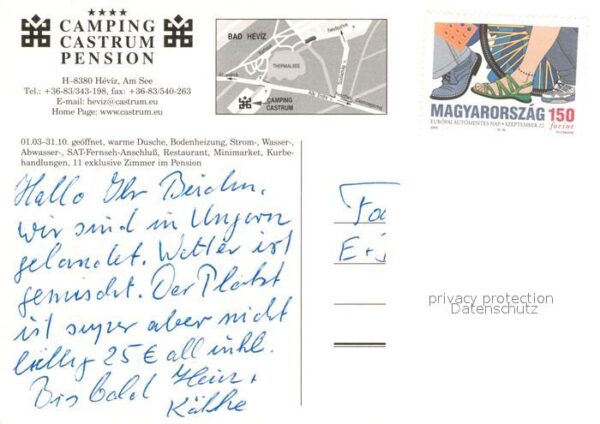 ★★★★
CAMPING
CASTRUM
PENSION
H-8380 Hévíz, Am See
Tel.: +36-83/343-198, fax: +36-83/540-263
E-mail: heviz@castrum.eu
Home Page: www.castrum.eu
BAD HÉVÍZ
THERMALSEE
CAMPING
CASTRUM
MAGYARORSZÁG 150
forint
EURÓPAI AUTÓMENTES NAP • SZEPTEMBER 22.
01.03–31.10. geöffnet, warme Dusche, Bodenheizung, Strom-, Wasser-,
Abwasser-, SAT-Fernseh-Anschluß, Restaurant, Minimarket, Kurbe-
handlungen, 11 exklusive Zimmer im Pension
Hallo Ihr Beiden,
wir sind in Ungarn
gelandet. Wetter ist
gemischt. Der Platz
ist super aber nicht
billig 25 € all inkl.
Bis bald Heinz +
Käthe
Fa
E+
privacy protection
Datenschutz